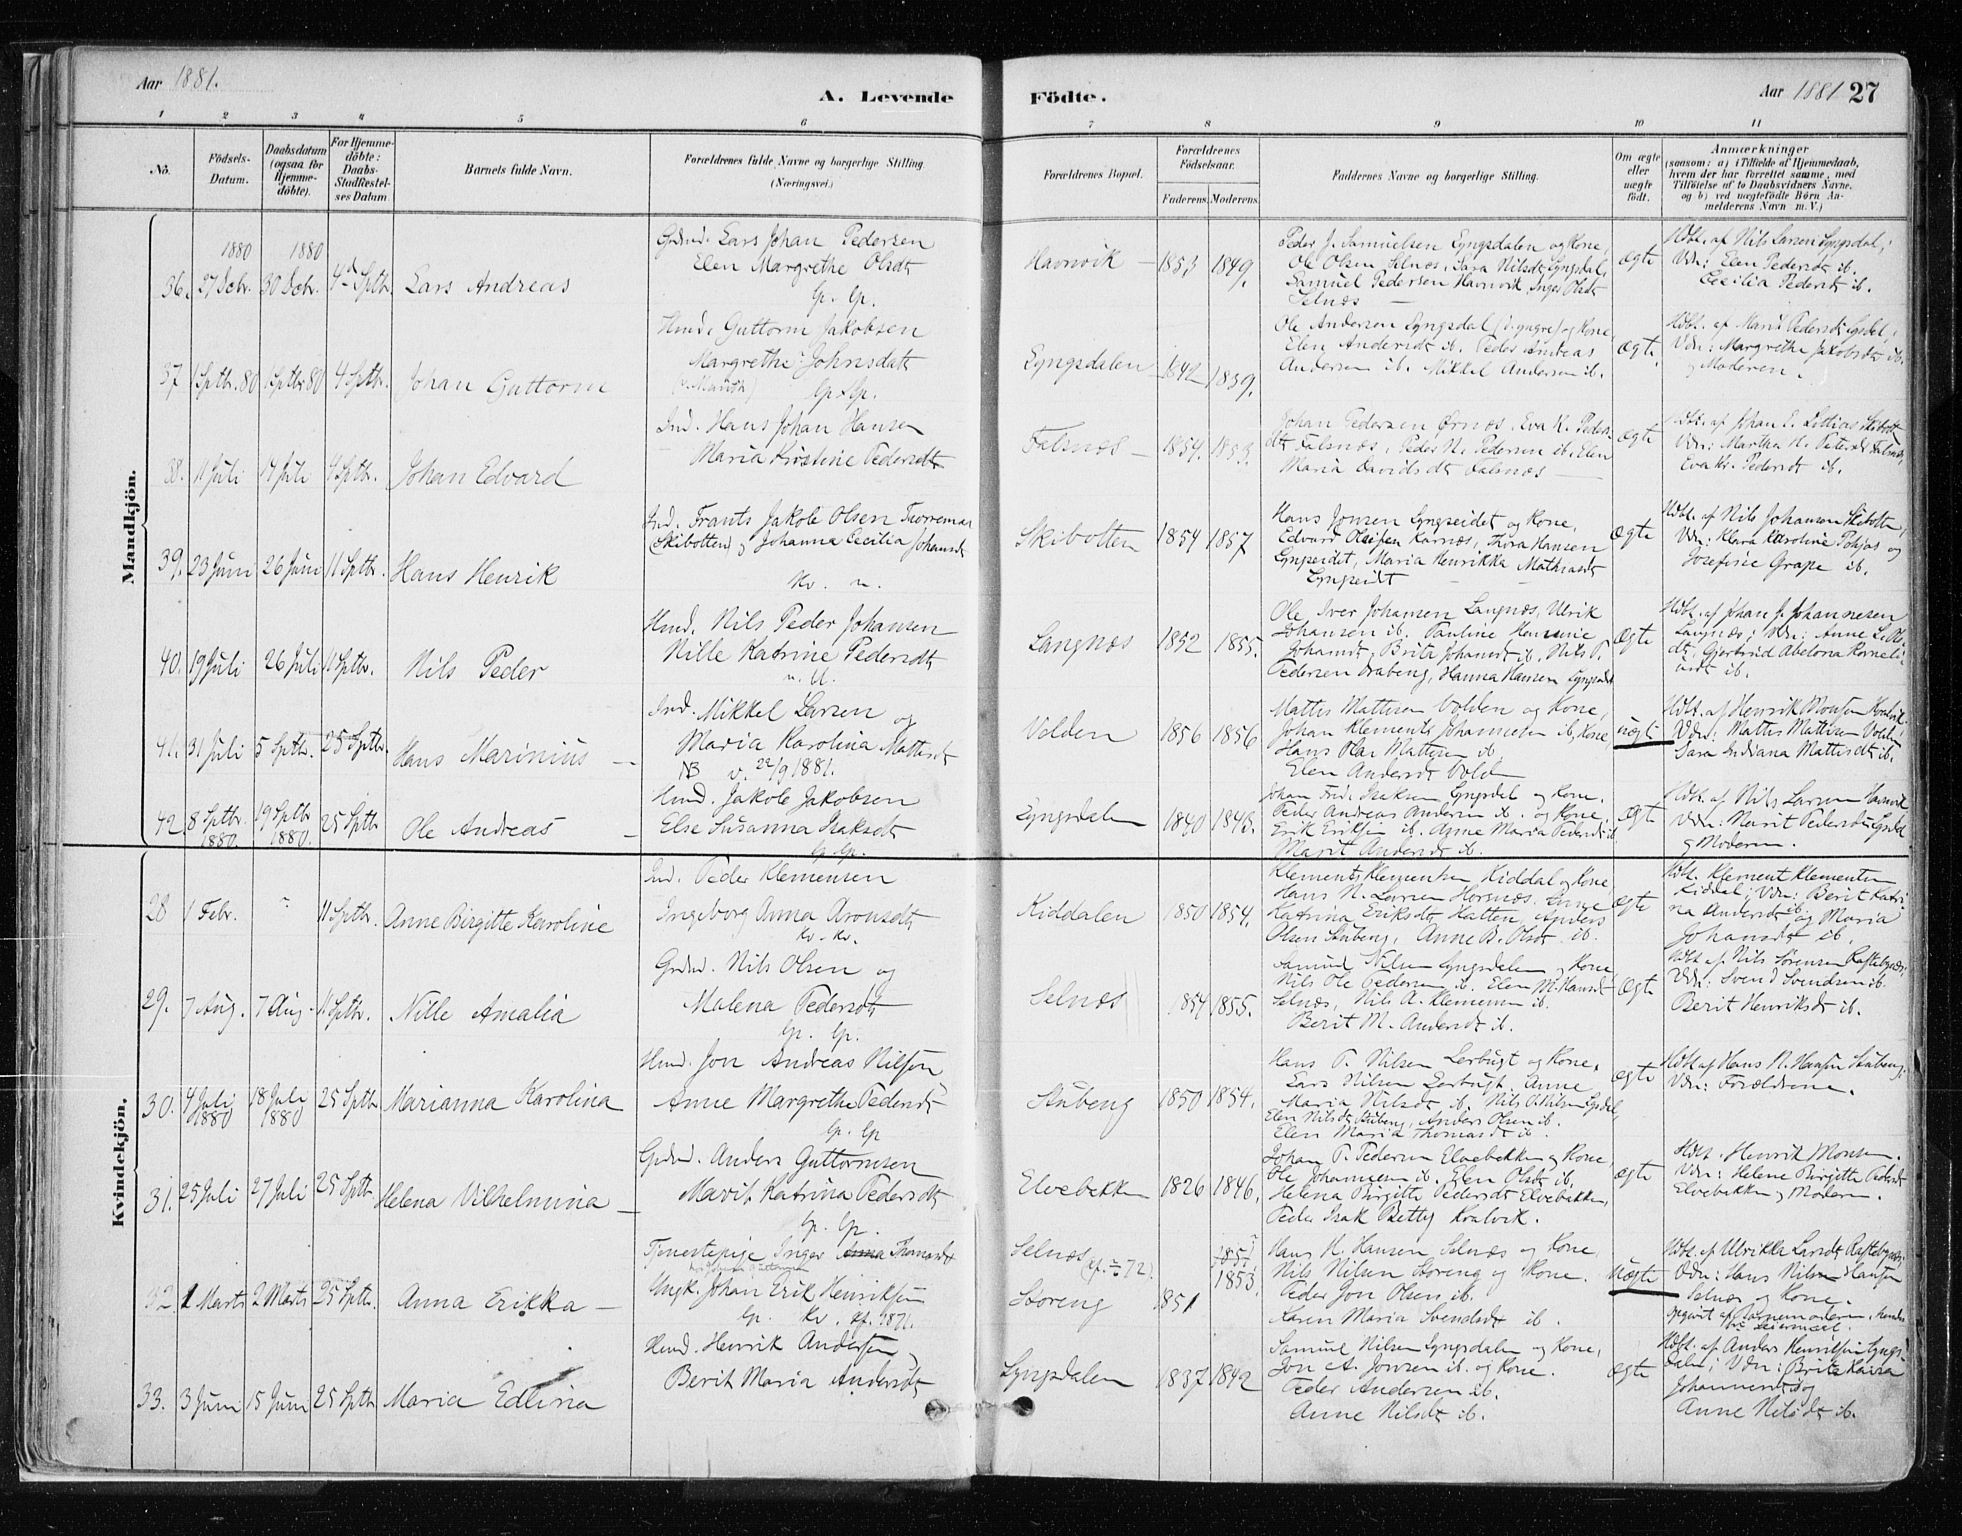 Aar 1881.
A. Levende Födte.
Aar 1881 27
1 2 3 4 5 6 7 8 9 10 11
No.
Födsels-Datum.
Daabsdatum (ogsaa for Hjemme-döbte).
For Hjemme-döbte: Daabs-Stadfæstel-ses Datum.
Barnets fulde Navn.
Forældrenes fulde Navne og borgerlige Stilling (Næringsvei.)
Forældrenes Bopæl.
Forældrenes Födselsaar.
Faderens. Moderens.
Faddernes Navne og borgerlige Stilling.
Om ægte eller uægte födt.
Anmærkninger
(saasom: a) i Tilfælde af Hjemmedaab,
hvem der har forrettet samme, med
Tilföielse af to Daabsvidners Navne.
og b) ved uægtefödte Börn An-
melderens Navn m. V.)
Mandkjön.
36. 1880 27 Dcbr. 1880 30 Dcbr. 4d Sptbr. Lars Andreas
Grdmd. Lars Johan Pedersen
Elen Margrethe Olsdt
Lp. Lp.
Havnvik 1853 1849.
Peder J. Samuelsen Lyngsdalen og Kone,
Ole Olsen Selnæs, Sara Nilsdt Lyngsdal,
Samuel Pedersen Havnvik, Inger Olsdt
Selnæs
ægte
Hdbt. af Nils Larsen Lyngsdal;
Vdn: Elen Pedersdt ib.
Cecilia Pedersdt ib.
37 1 Sptbr. 80 1 Sptbr. 80 4 Sptbr. Johan Guttorm
Hmd. Guttorm Jakobsen
Margrethe Johnsdatt
Lp. Lp.
Lyngsdalen 1842 1839.
Ole Andersen Lyngsdal (d. yngre) og Kone,
Elen Andersdt ib. Peder Andreas
Andersen ib. Mikkel Andersen ib.
ægte.
Hdbt. af Marit Pedersdt Lyngsdal;
Vdn: Margrethe Jakobsdt ib.
og Moderen.
38. 11 Juli 14 Juli 4 Sptbr. Johan Edvard
Ind. Hans Johan Hansen
Maria Kirstine Pedersdt
Falsnæs 1854. 1853.
Johan Pedersen Ørnæs, Eva K. Peders-
dt Falsnæs, Peder N. Pedersen ib. Elen
Maria Davidsdt Falsnæs
ægte
Vdn: Martha N. Petersdt Falsnæs,
Eva Kr. Pedersdt ib.
39. 23 Juni 26 Juni 11 Sptbr. Hans Henrik
Ind. Frants Jakob Olsen
(Skibotten) og Johanna Cecilia Johansdt
Kv. n.
Skibotten 1854 1857
Hans Jonsen Lyngseidet og Kone,
Edvard Olsen Karnæs, Thora Hansen
Lyngseidet, Maria Henrikka Mathiasdt
Lyngseidt
ægte
Hdbt. af Nils Johansen Skibotten,
Vdn: Klara Karoline Pohjas og
Josefine Grape ib.
40. 19 Juli 26 Juli 11 Sptbr. Nils Peder
Hmd. Nils Peder Johansen
Nille Katrine Pedersdt
Langnæs 1852 1855.
Ole Iver Johansen Langnæs, Ulrik
Johansen ib. Pauline
Johansdt, Brita Johansdt ib, Nils P.
Pedersen, Hanna Hansen
ægte
Hdbt. af Johan J. Johannesen
Langnæs; Vdn: Anne
Gjertrud Abelona Korneli-
usdt ib.
41. 31 Juli 5 Sptbr. 25 Sptbr. Hans Marinius
Ind. Mikkel Larsen og
Maria Karolina Mattisdt
NB v. 22/9 1881.
Volden 1856 1856
Mattis Mattisen Volden og Kone,
Johan Klements Johannesen ib, Kone
Hans Olai Mattisen ib
Elen Andersdt Volden
uægte
Hdbt. af Henrik Monsen Kvalvik
Vdn: Mattis Mattisen Volden
Sara Indiana Mattisdt ib.
42 8 Sptbr. 1880 19 Sptbr 1880. 25 Sptbr Ole Andreas
Hmd. Jakob Jakobsen
Else Susanna Isaksdt
Lp. Lp.
Lyngsdalen 1840 1843.
Johan Fred. Isaksen Lyngsdal og Kone.
Peder Andreas Andersen ib. og Kone,
Erik Eriksen ib. Anne Maria Pedersdt ib
Marit Andersdt ib.
ægte
Hdbt. af Nils Larsen Havnvik
Vdn. Marit Pedersdt Lyngsdal
og Moderen.
Kvindekjön.
28 1 Febr. 11 Sptbr. Anne Birgitte Karoline
Ind. Peder Klemensen
Ingeborg Anna Aronsdt
Kv. Kv.
Kiddalen 1850 1854.
Klement Klementsen Kiddal og Kone,
Hans N. Larsen Horsnæs,
Katrina Eriksdt Hatten, Anders
Olsen Stubeng, Anne B. Olsdt ib.
ægte
Hdbt. Klement Klementsen
Kiddal; Vdn: Berit Katri-
na Andersdt ib og Maria
Johansdt ib.
29. 7 Aug. 7 Aug. 11 Sptbr. Nille Amalia
Grdmd. Nils Olsen og
Malena Pedersdt
Lp. Lp.
Selnæs 1854 1855.
Samuel Nilsen Lyngsdalen og Kone
Nils Ole Pedersen ib. Elen M. Hansdt
Selnæs, Nils A. Klemensen ib.
Berit M. Andersdt ib.
ægte
Hdbt af Nils Sörensen Rastebynæs;
Vdn: Svend Svendsen ib.
Berit Henriksdt ib.
30. 4 Juli 1880 18 Juli 1880 25 Sptbr Marianna Karolina
Hmd. Jon Andreas Nilsen
Anne Margrethe Pedersdt
Lp. Lp
Stubeng 1850 1854.
Hans P. Nilsen Lerbugt og Kone.
Lars Nilsen Lerbugt. Anne
Maria Nilsdt ib. Nils O. Nilsen Lyngsdal,
Elen Nilsdt Stubeng, Anders Olsen ib.
Elen Maria Thomasdt ib.
ægte
Hdbt af Hans N. Hansen Stubeng;
Vdn: Forældrene.
31. 25 Juli 27 Juli 25 Sptbr Helena Vilhelmina
Grdmd. Anders Guttormsen
Marit Katrina Pedersdt
Lp. Lp.
Elvebakken 1826 1846,
Johan P. Pedersen Elvebakken og Kone
Ole Johannesen ib. Elen Olsdt ib.
Helena Birgitte Pedersdt Elvebakken,
Peder Isak Betty Kvalvik.
ægte
Hdbt. Henrik Monsen.
Vdn: Helene Birgitte Pedersdt
Elvebakken og Moderen.
32. 1 Marts 2 Marts 25 Sptbr. Anna Erikka
Tjenestepige Inger Anna Thomasdt
Ungk. Johan Erik Henriksen
Lp. Kv. kf. 1871.
Selnæs (kf. 72)
Storeng 1851 1851 1853
Hans N. Hansen Selnæs og Kone
Nils Nilsen Storeng og Kone.
Peder Jon Olsen ib.
Karen Maria Svendsdt ib.
uægte
Hdbt. af Ulrikka Larsdt Rastebynæs;
Vdn: Hans Nilsen Hansen
Selnæs og Kone.
Opgivet af Barnemoderen, hendes
Leiermaal.
33. 3 Juni 15 Juni 25 Sptbr Maria Edlina
Hmd. Henrik Andersen og
Berit Maria Andersdt
Lyngsdalen 1837 1842
Samuel Nilsen Lyngsdalen og Kone,
Jon A. Jonsen ib. og Kone.
Peder Andersen ib.
Anne Nilsdt ib.
ægte
Hdbt. af Anders Henriksen Lyngs-
dalen; Vdn: Brita Kaisa
Johannesdt og
Anne Nilsdt ib.